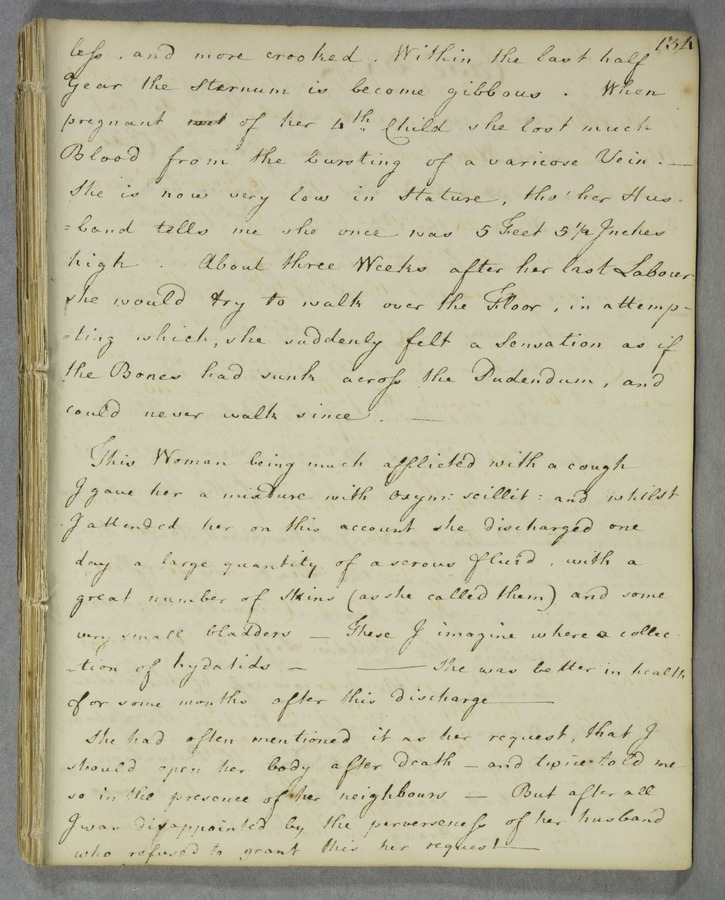 134
less, and more crooked. Within the last half
Year the sternum is become gibbous. When
pregnant of her 4th Child she lost much
Blood from the bursting of a varicose Vein. —
She is now very low in Stature, tho' her Hus-
=band tells me she once was 5 Feet 5½ Inches
high. About three Weeks after her last Labour
she would try to walk over the Floor, in attemp-
=ting which, she suddenly felt a Sensation as if
the Bones had sunk across the Pudendum, and
could never walk since. —
This Woman being much afflicted with a cough
I gave her a mixture with oxym: scillit: and whilst
I attended her on this account she discharged one
day a large quantity of a serous fluid, with a
great number of skins (as she called them) and some
very small bladders — These I imagine where a collec-
-tion of hydatids — — She was better in health
for some months after this discharge —
She had often mentioned it as her request, that I
should open her body after Death — and twice told me
so in the presence of her neighbours — But after all
I was disappointed by the perverseness of her husband
who refused to grant this her request —